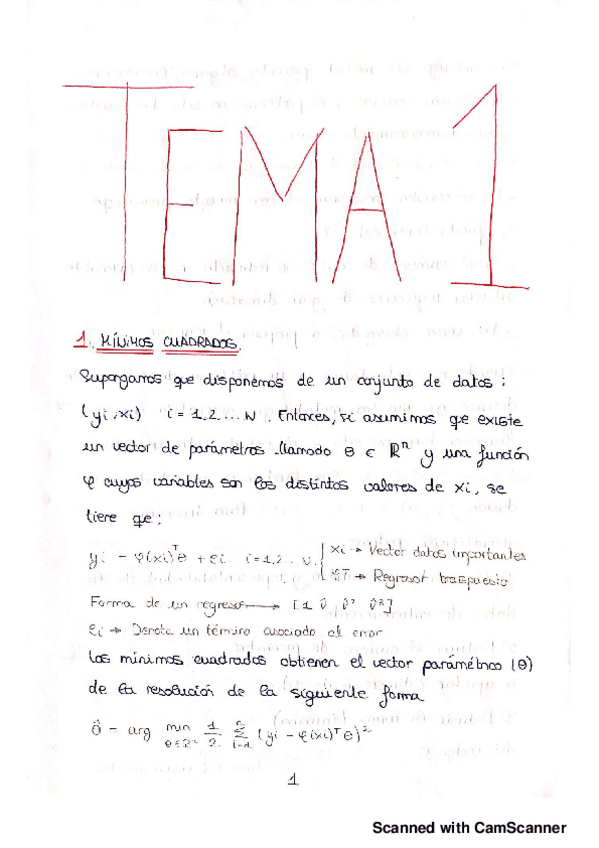 TEMA 1
1. MÍNIMOS CUADRADOS.
Supongamos que disponemos de un conjunto de datos:
(yi, xi) i = 1,2 ... N. Entonces, si asumimos que existe
un vector de parámetros llamado θ ∈ ℝⁿ y una función
φ cuyas variables son los distintos valores de xi, se
tiene que:
yi = φ(xi)ᵀθ + εi i = 1,2.. N. { xi → Vector datos importantes
φᵀ → Regresor traspuesto
Forma de un regresor → [1 v̂ v̂² v̂³]
εi → Denota un término asociado al error
Los mínimos cuadrados obtienen el vector paramétrico (θ)
de la resolución de la siguiente forma
θ̂ = arg min θ∈ℝⁿ 1/2 Σ i=1 (yi - φ(xi)ᵀθ)²
1
Scanned with CamScanner